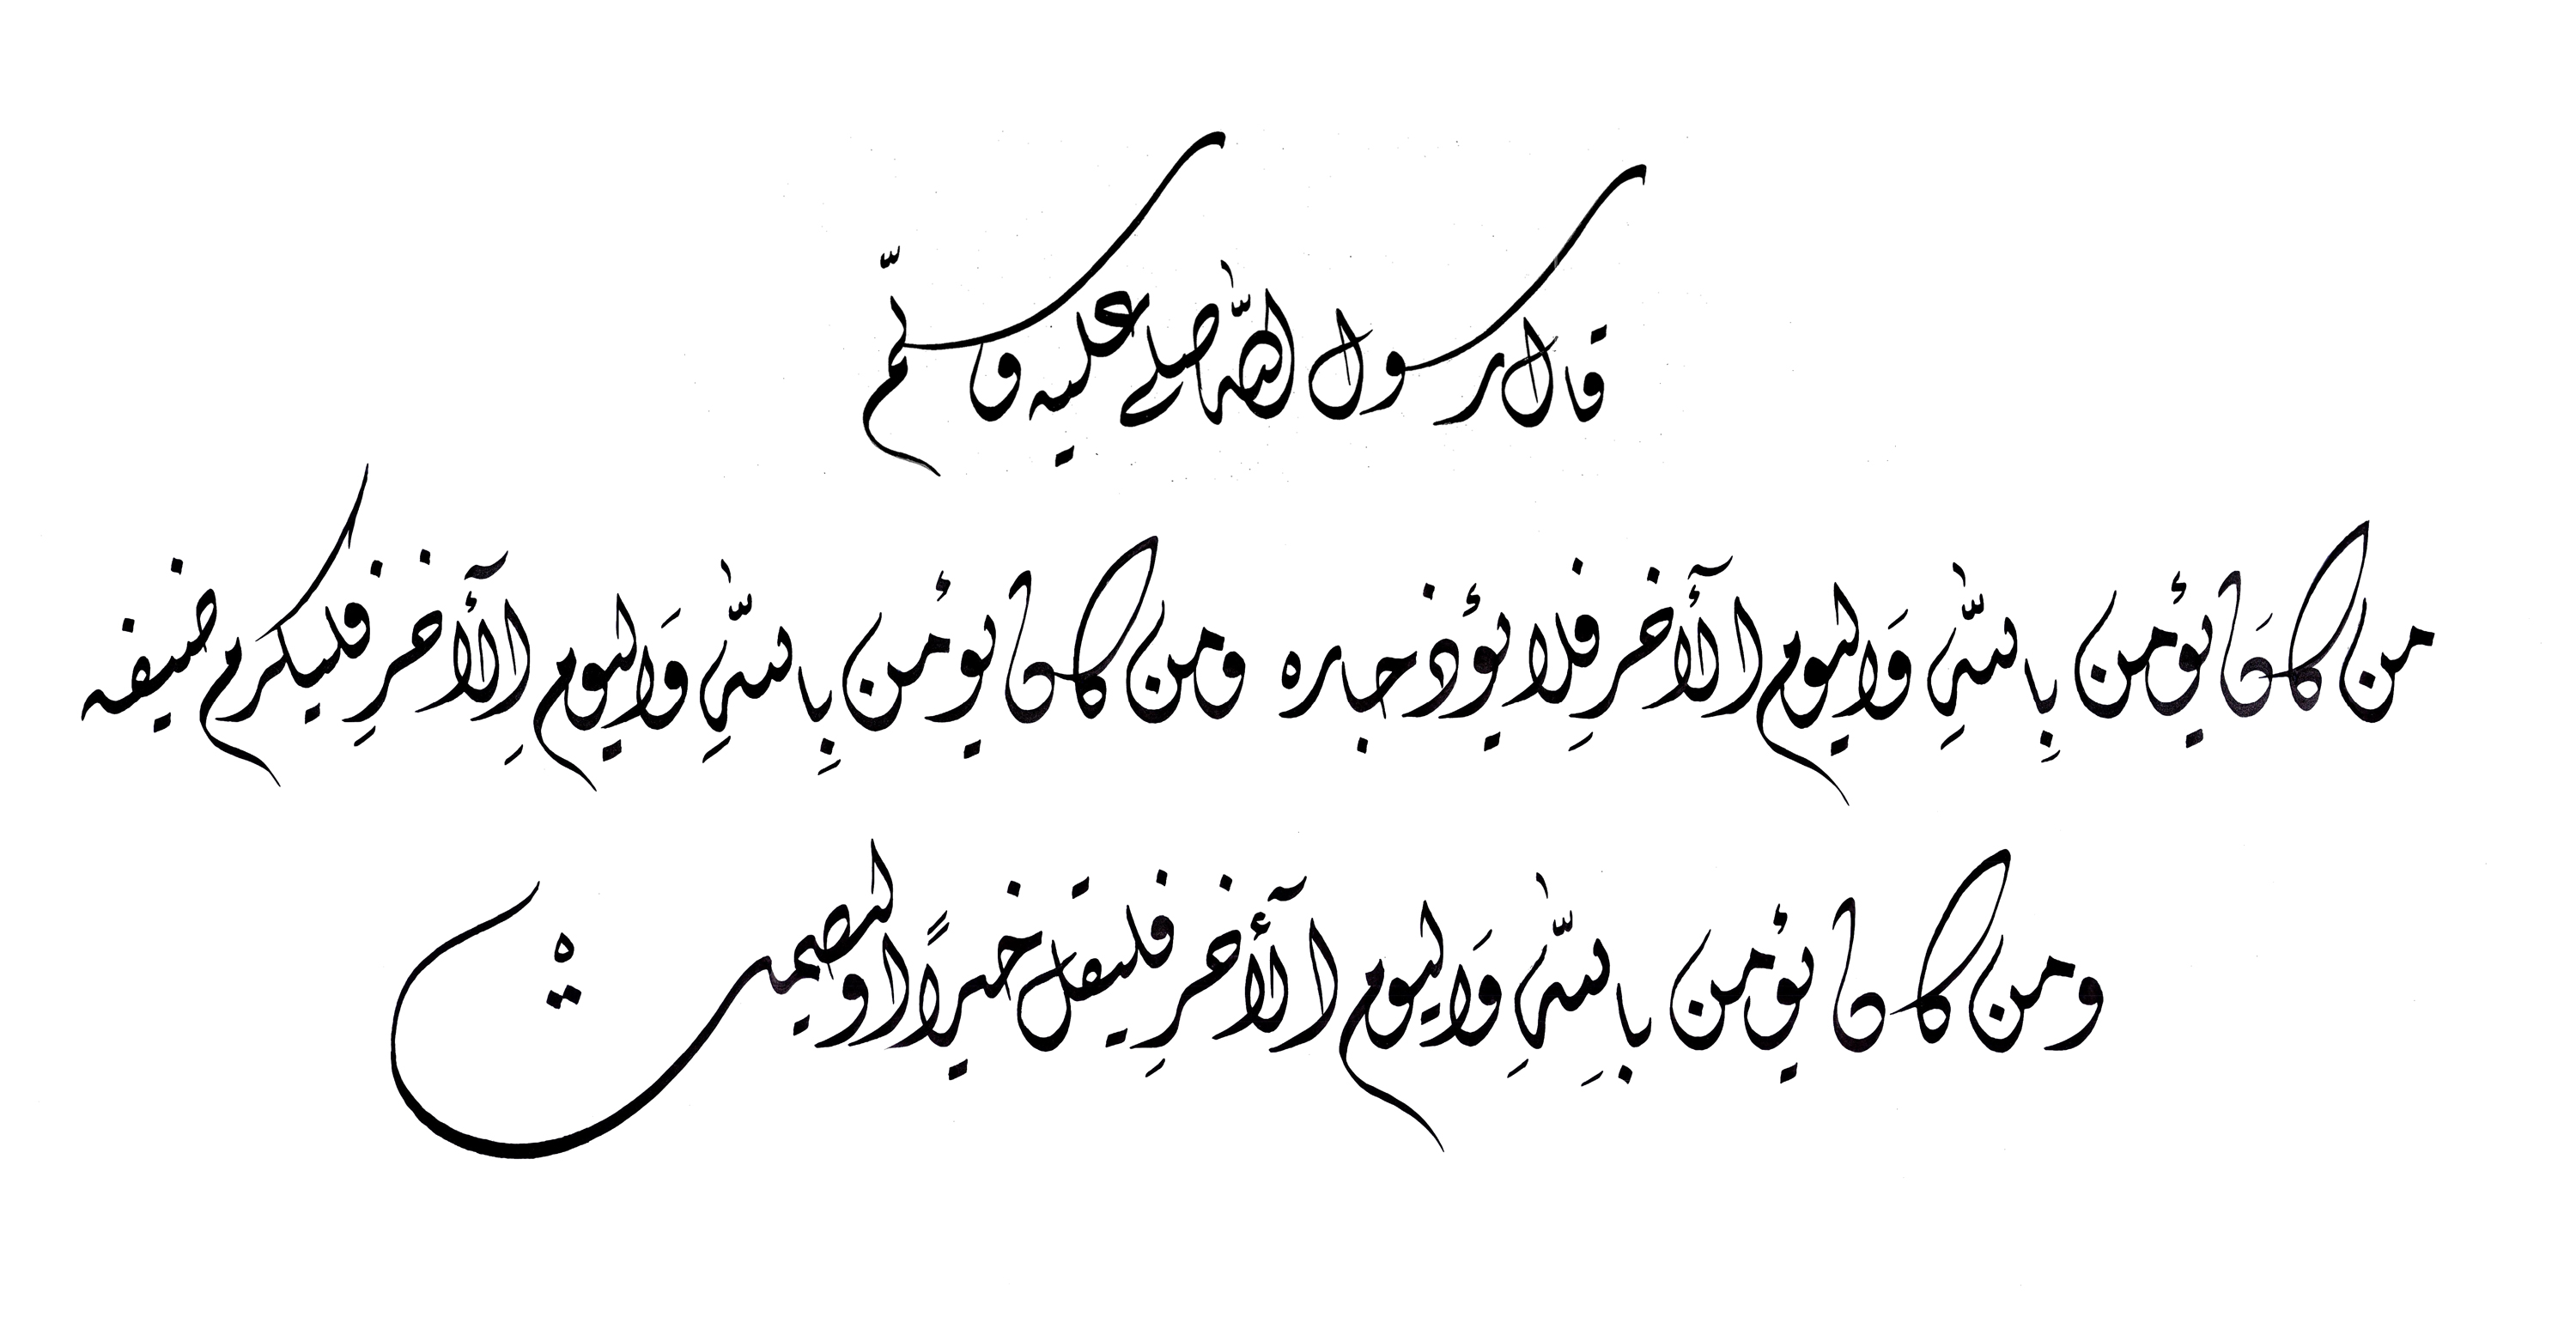 قال رسول الله صلى عليه وسلم
من كان يؤمن بالله واليوم الآخر فلا يؤذ جاره ومن كان يؤمن بالله واليوم الآخر فليكرم ضيفه
ومن كان يؤمن بالله واليوم الآخر فليقل خيرًا او ليصمت